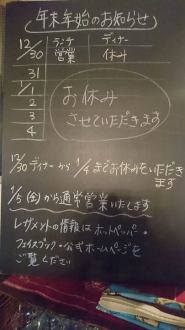 年末年始のお知らせ
12/30 ランチ 営業 ディナー 休み
31
1/1
2
3
4
お休み
させていただきます
12/30 ディナーから 1/4までお休みをいただき
ます
1/5(金)から通常営業いたします
レザメントの情報はホットペッパー・
フェイスブック・公式ホームページを
ご覧ください